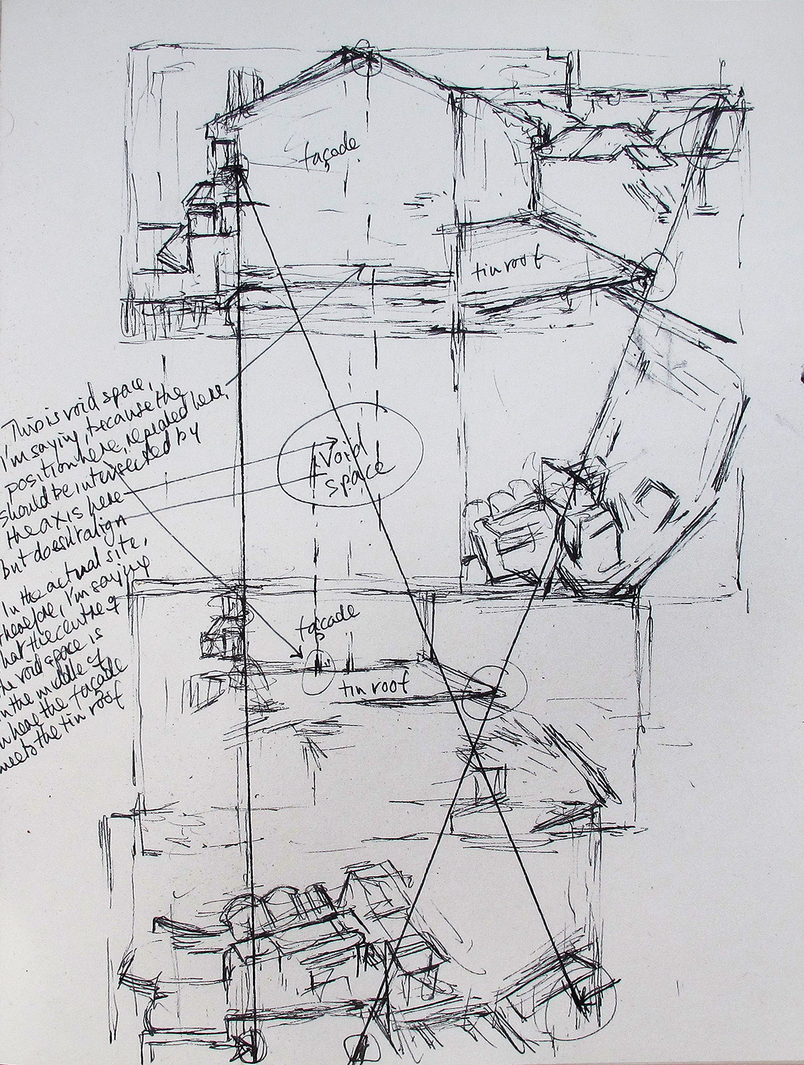 façade
tin roof
This is void space,
I'm saying, because the
position here, repeated here,
should be intersected by
the axis here
but doesn't align
In the actual site,
therefore, I'm saying
that the centre of
the void space is
in the middle of
where the façade
meets the tin roof
Void
space
façade
tin roof